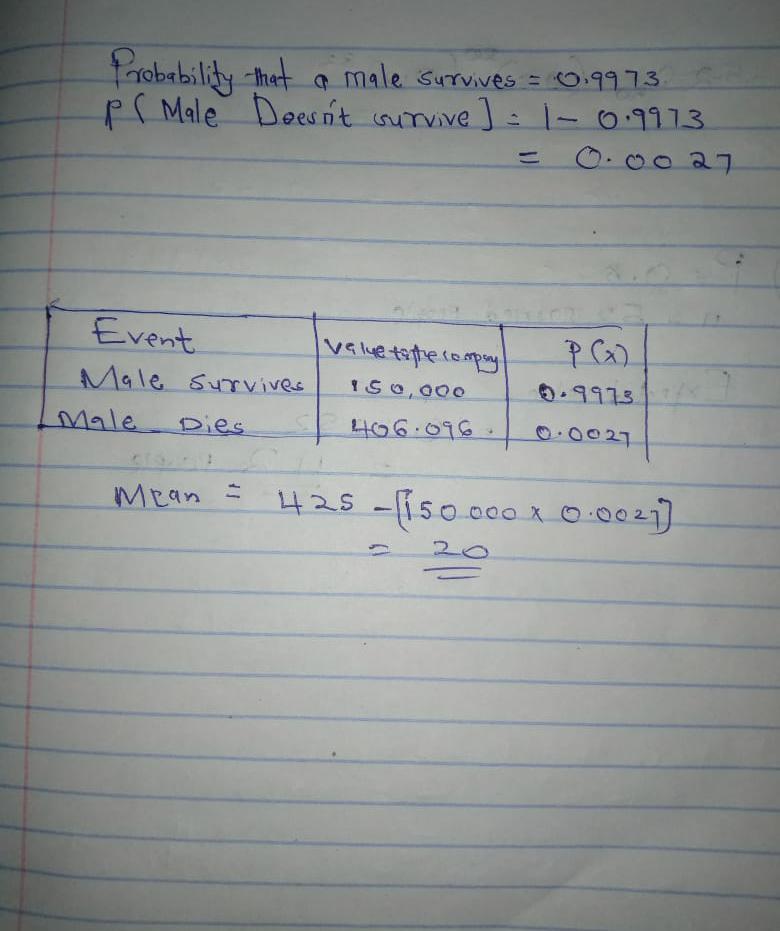 Probability that a male survives = 0.9973
P[ Male Doesn't survive ] = 1 - 0.9973
= 0.0027
Event value to the company P(x)
Male survives 150,000 0.9973
Male Dies 406.096. 0.0027
Mean = 425 - [150 000 x 0.0027]
= 20